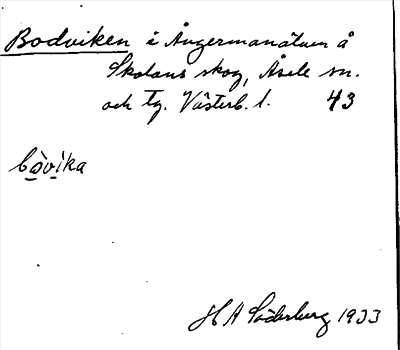 Bodviken i Ångermanälven å
Skolans skog, Åsele sn.
och tg. Västerb. l. 43
bòvika
H A Söderberg 1933